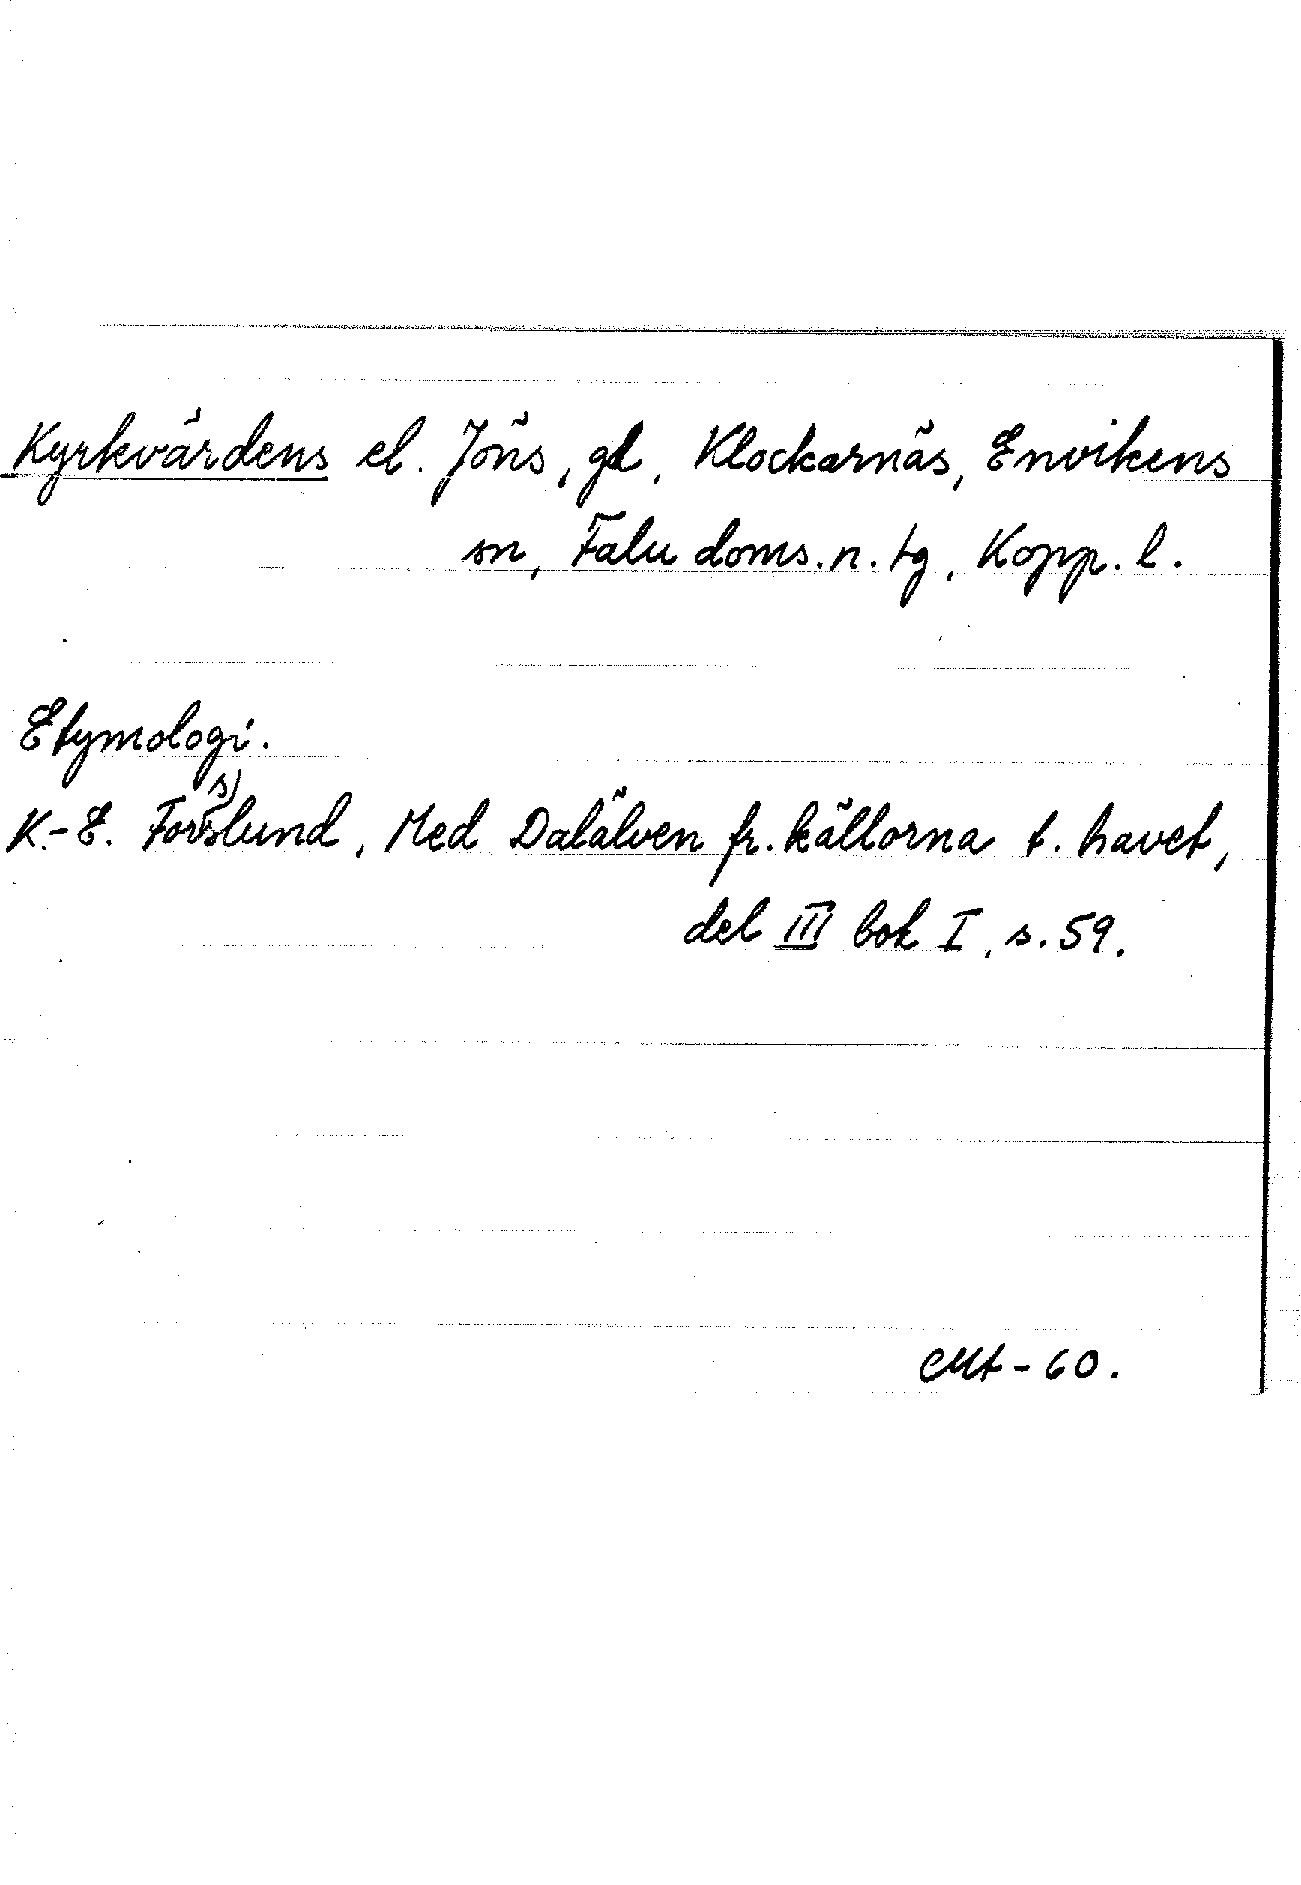 Kyrkvärdens el. Jöns, gd, Klockarnäs, Envikens
sn, Falu doms.n.tg, Kopp. l.
Etymologi.
K.-E. Forsslund, Med Dalälven fr. källorna t. havet,
del III bok I, s. 59.
EMt-60.